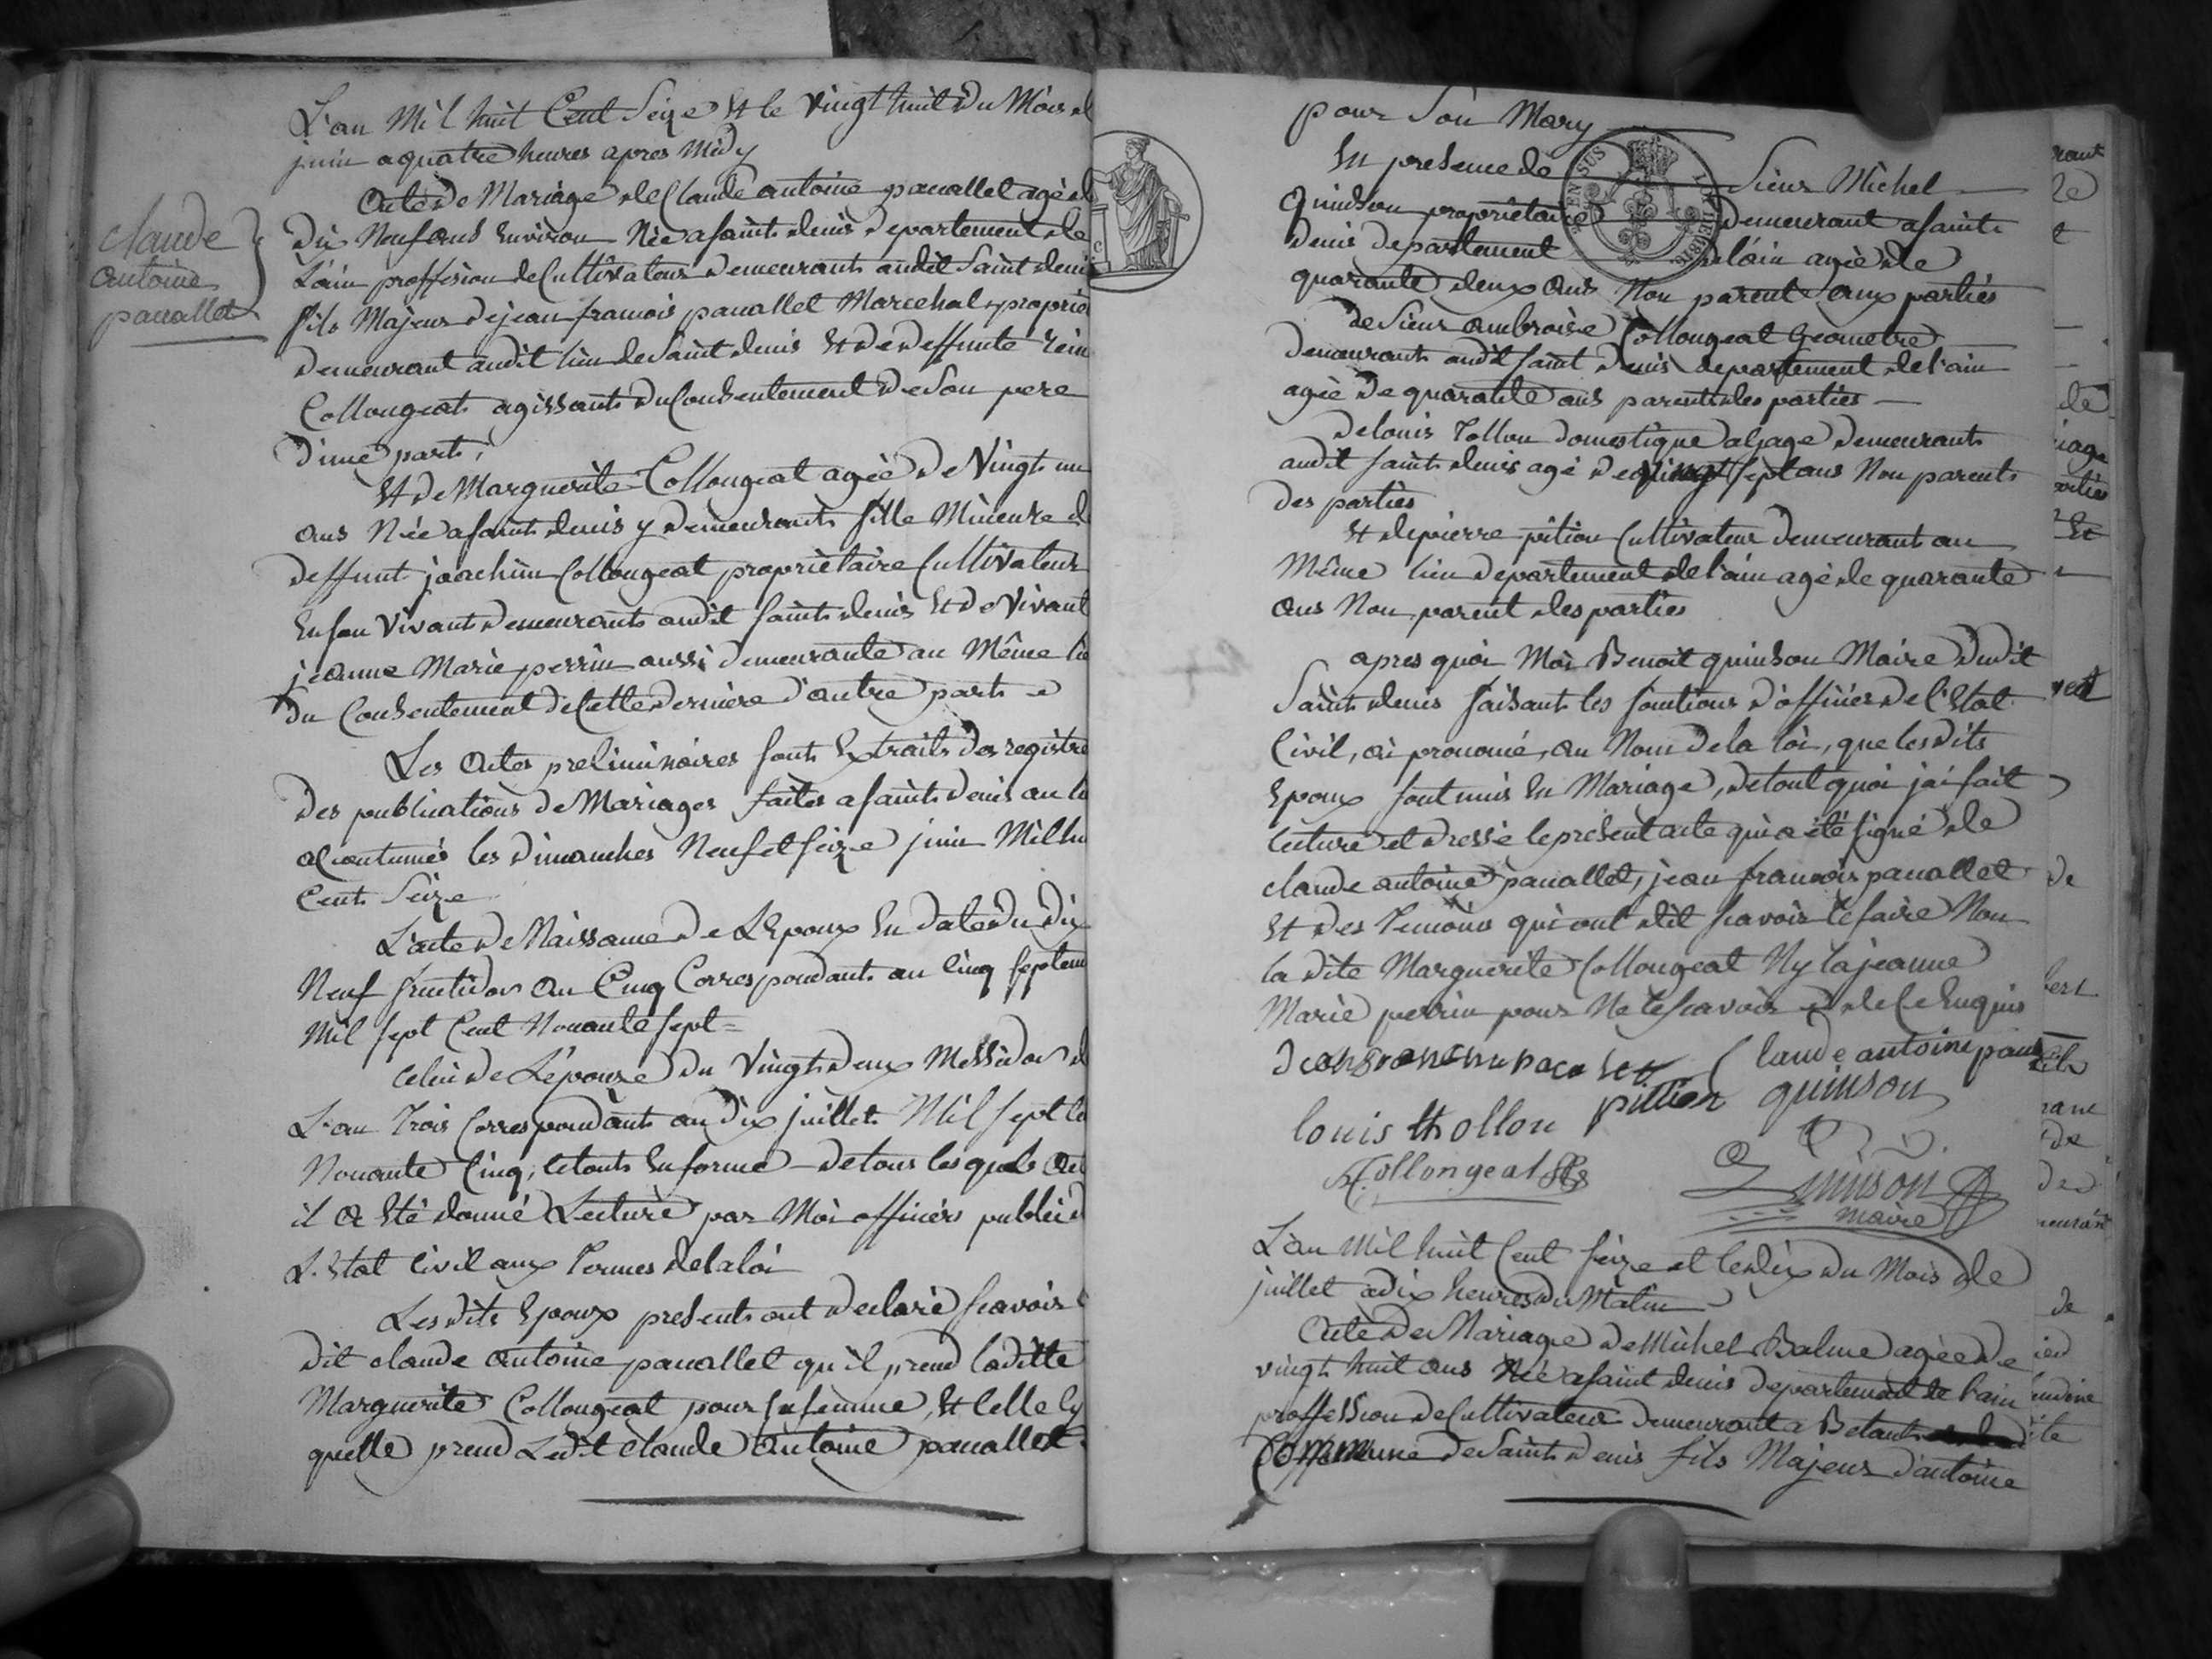 claude
antoine
pacallet
L'an Mil huit Cent Seize Et le Vingt huit Du Mois d
juin a quatre heures apres Midy
Acte De Mariage de Claude antoine pacallet agé d
Dix Neuf ans Environ Née a saint denis Departement de
L'ain proffesion de Cultivateur Demeurant audit Saint deni
fils Majeur de jean francois pacallet Marechal proprie
Demeurant audit lieu de Saint denis Et de Deffunte
Collongeat agissant du Consentement De Son pere
D'une part,
Et De Marguerite Collongeat agée De Vingt un
ans Née a saint denis y Demeurant fille Mineure d
deffunt joachim Collongeat proprietaire Cultivateur
En son Vivant Demeurant audit saint denis Et De Vivant
jeanne Marie perrin aussi demeurante au Même li
Du Consentement de Cette Derniere D'autre part
Les Actes preliminaires sont Extraits des registre
des publications de Mariages faites a saint Denis au li
acoutumés les Dimanches Neuf et seize juin Mil hu
Cent Seize
L'acte De Naissance De L'Epoux En date du Dix
Neuf fructidor an Cinq Correspondant au Cinq septem
Mil sept Cent Nonante sept =
Celui de L'épouse Du Vingt deux Messidor d
L'an Trois Correspondant au dix juillet Mil sept Ce
Nonante Cinq, le tout En forme De tous les quels Act
il a Eté donné Lecture par Moi officiers public d
L'Etat Civil aux Termes de la loi
Les dits Epoux presents ont Declaré scavoir
dit claude antoine pacallet qu'il prend laditte
Marguerite Collongeat pour sa femme, Et Celle Cy
quelle prend Ledit claude antoine pacallet
pour Son Mary
En presence de Sieur Michel
Quinson proprietaire Demeurant a saint
Denis Departement de l'ain agé de
quarante deux ans Non parent aux parties
de Sieur ambroise Collongeat Geometre
Demeurant audit saint Denis departement de l'ain
agée De quarante ans parent des parties
De louis Tollon Domestique a gage Demeurant
audit saint denis agé de vingt sept ans Non parent
des parties
Et de pierre pition Cultivateur Demeurant au
Même lieu Departement de l'ain agé de quarante
ans Non parent des parties
apres quoi Moi Benoit quinson Maire Dudit
Saint denis faisant les fonctions d'officier De l'Etat
Civil, ai prononcé, au Nom De la loi, que lesdits
Epoux sont unis En Mariage, De tout quoi j'ai fait
lecture et Dressé le present acte qui a été signé de
claude antoine pacallet, jean francois pacallet
Et des Temoins qui ont dit scavoir le faire Non
la dite Marguerite Collongeat Ny la jeanne
Marie perrin pour Ne le scavoir de Ce Enquis
Claude antoine pacallet
louis thollon pittion quinson
Collongeat
Quinson
maire
L'an Mil huit Cent seize et le dix du Mois de
juillet a dix heures Du Matin
Acte De Mariage De Michel Balme agée De
vingt huit ans Né a saint denis departement de l'ain
proffession de Cultivateur demeurant a Betant
Commune de Saint Denis fils Majeur d'antoine